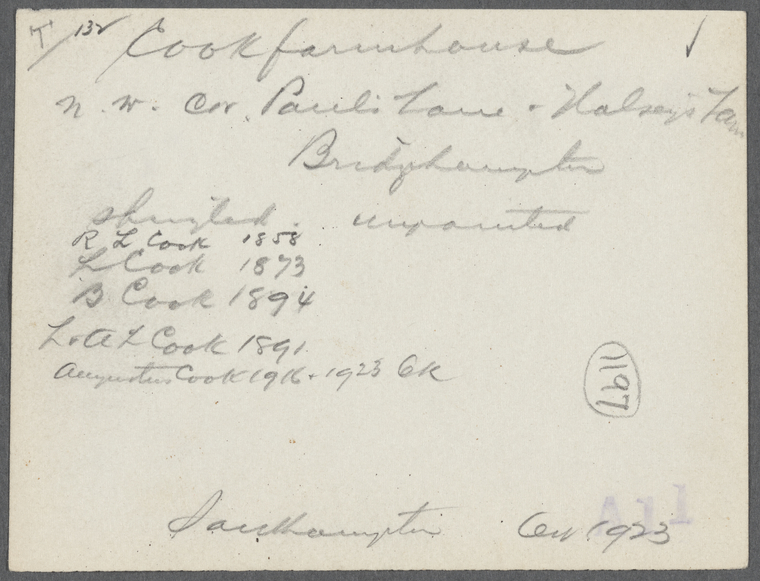 T/132 Cook farmhouse
n. w. cor. Paul's Lane + Halsey's Lane
Bridgehampton
shingled. unpainted
R L Cook 1858
L Cook 1873
B Cook 1894
L + A L Cook 1891
Augustus Cook 1916 - 1923 Ok
1197
All
Southampton 1923